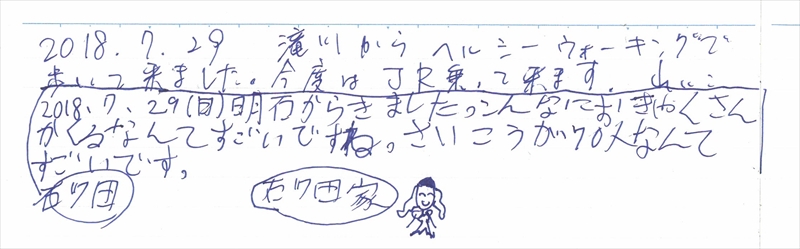 2018.7.29 滝川から ヘルシーウォーキングで
歩いて来ました。今度はJR乗って来ます。
2018.7.29(日)明石からきましたっこんなにおきゃくさん
がくるなんてすごいですね。さいこうが70人なんて
すごいです。
石田
石田家